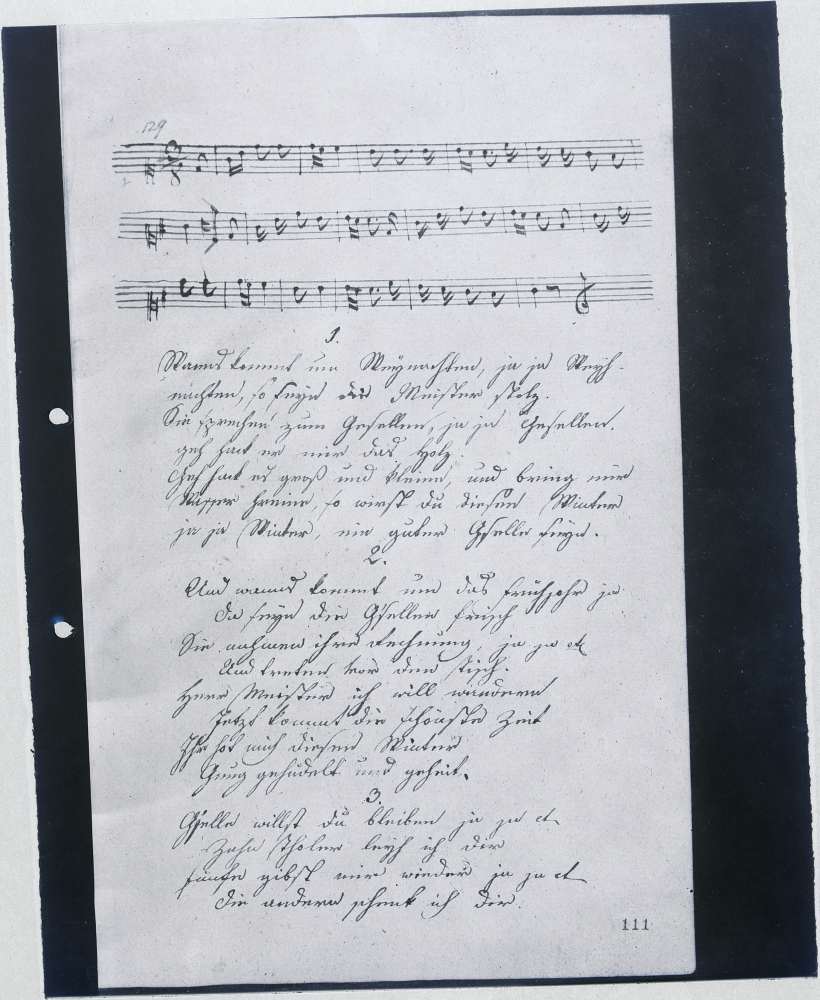 129
1.
Wanns kommt um Weynachten, ja ja Weyh-
nachten, so seyn die Meister stolz.
Sie sprechen zum Gesellen, ja ja Gesellen,
geh hack er mir das Holz.
Geh hack es groß und kleine, und bring mir
Wasser hreine, so wirst du diesen Winter
ja ja Winter, ein guter Gselle seyn.
2.
Und wanns kommt um das Frühjahr ja
da seyn die Gsellen frisch
Sie nahmen ihre Rechnung, ja ja et
Und treten vor den Tisch.
Herr Meister ich will wandern
Jetzt kommt die schönste Zeit
Ihr hot mich diesen Winter
Gnug gehudelt und geheit.
3.
Gselle willst du bleiben ja ja et
Zehn Tholer leyh ich dir
fünfe gibst mir wieder ja ja et
die andern schenk ich dir.
111